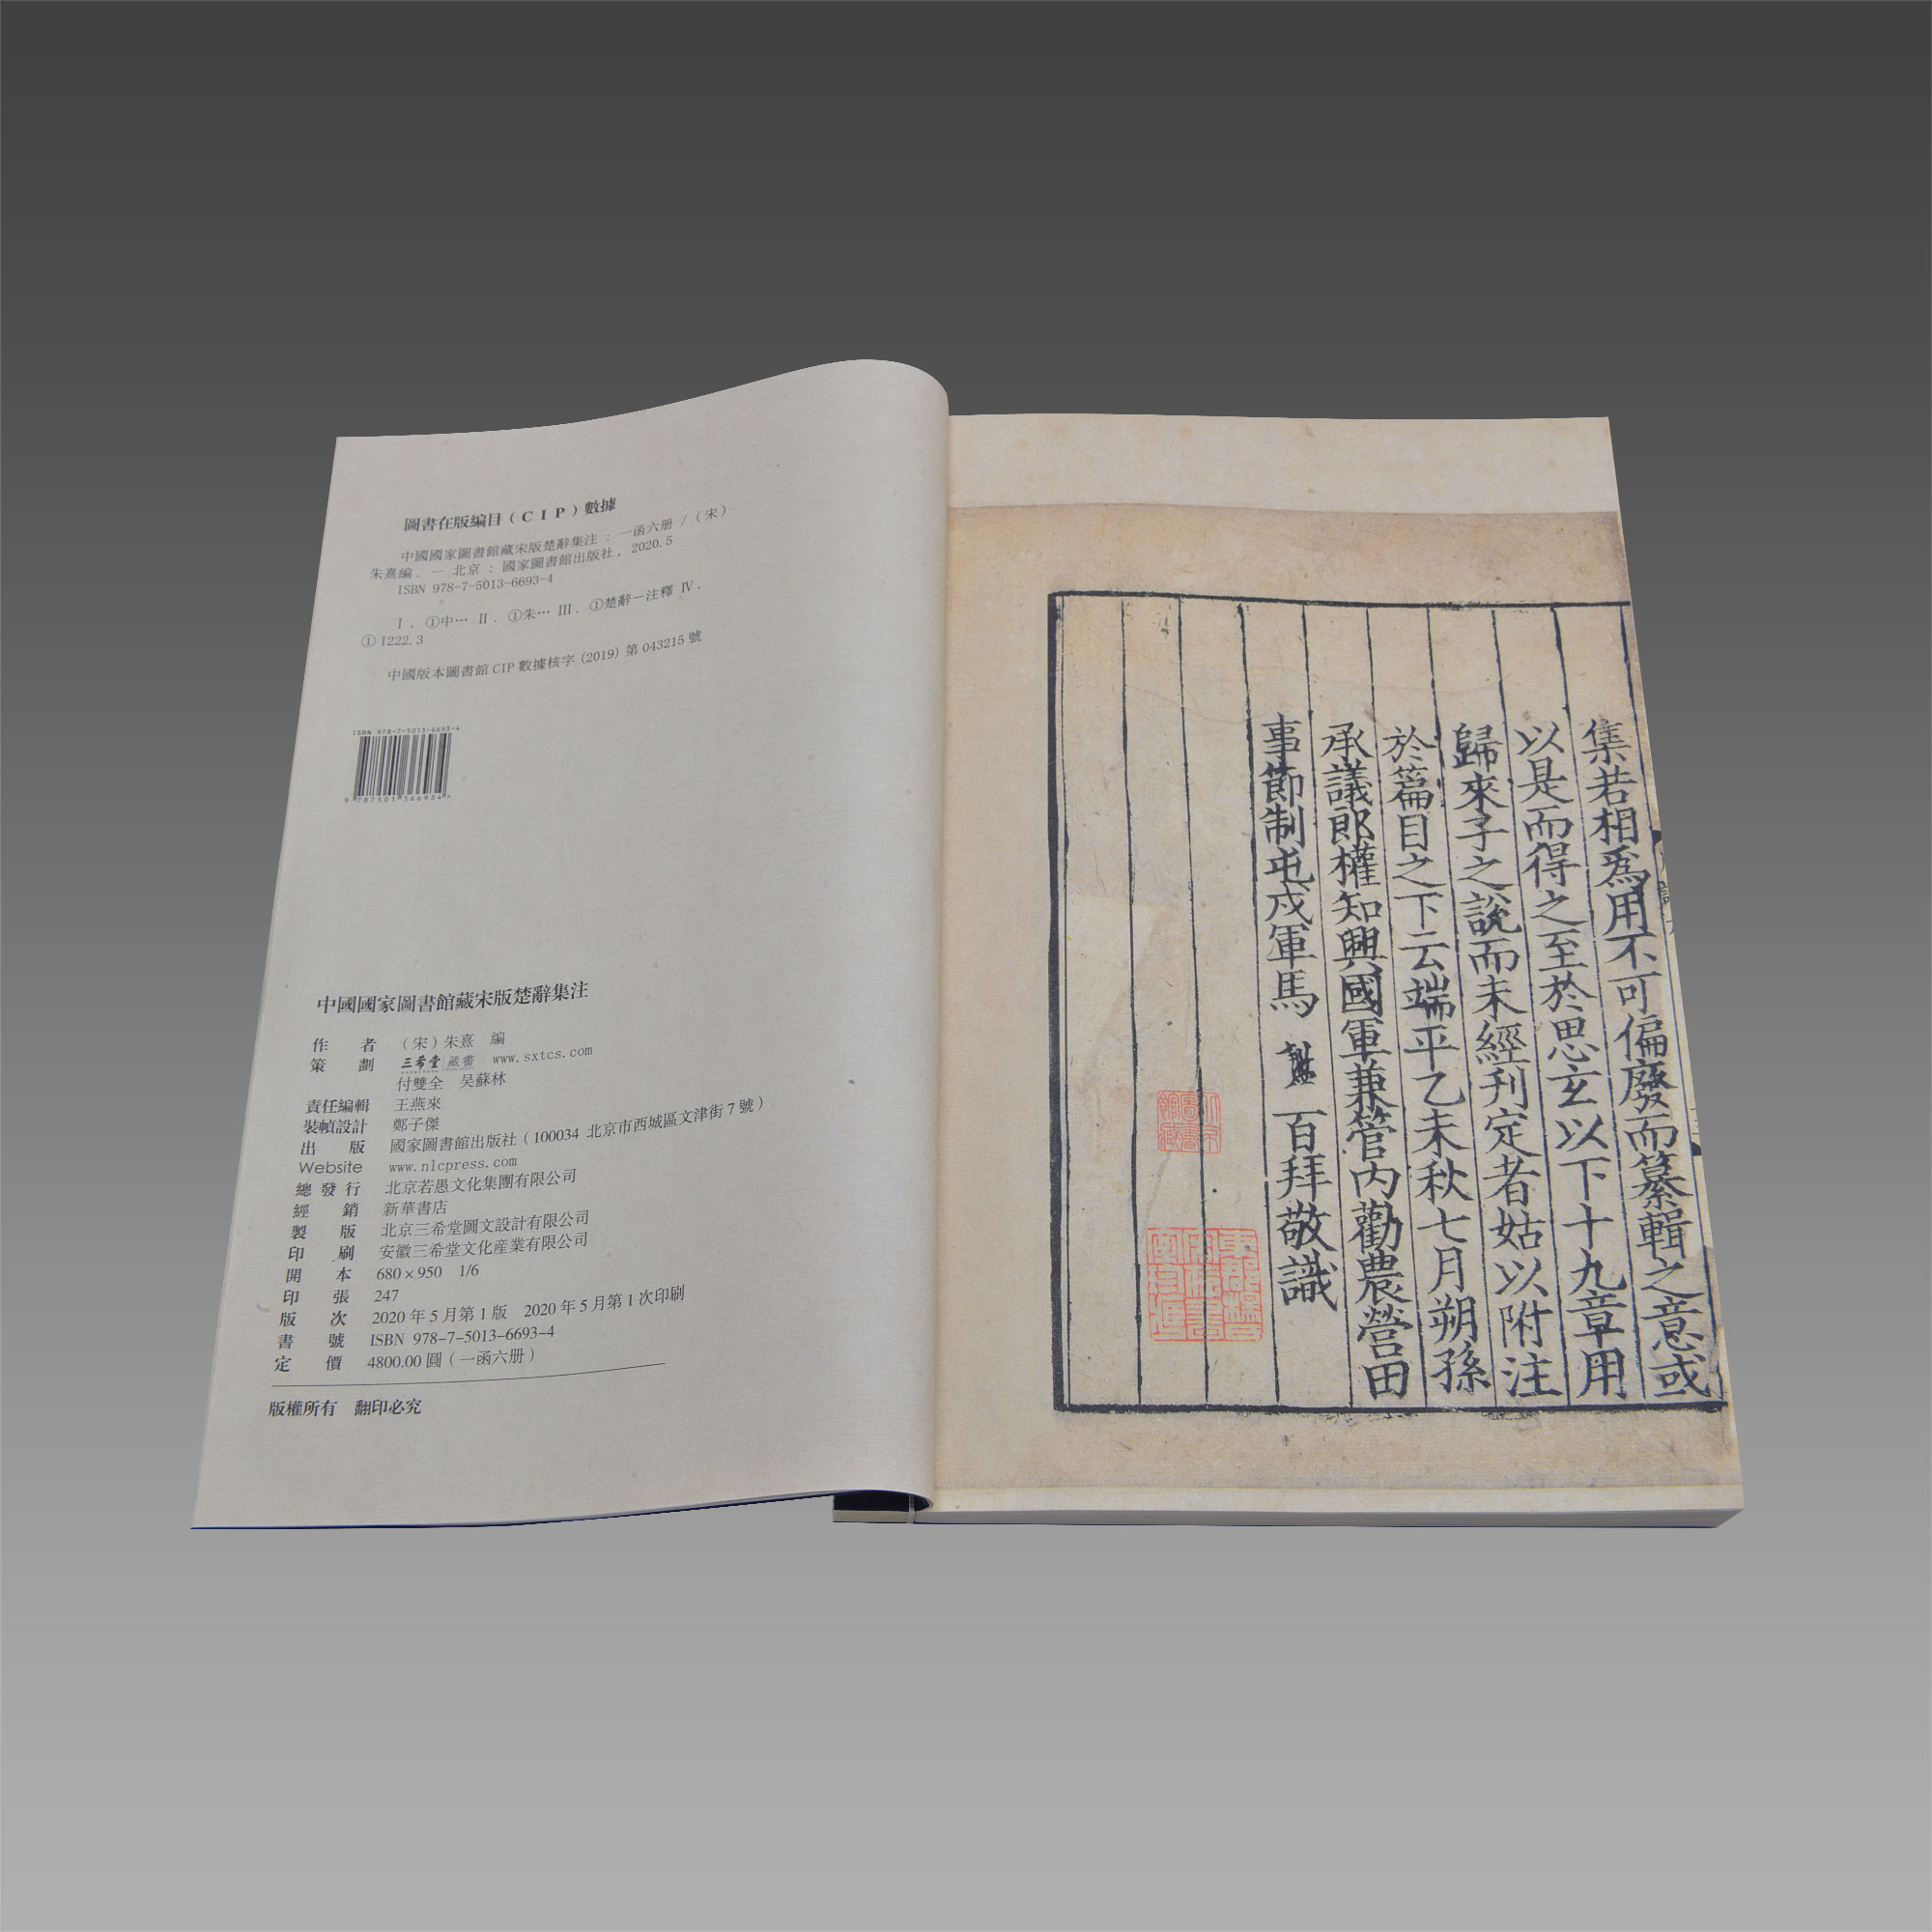 圖書在版編目（CIP）數據
中國國家圖書館藏宋版楚辭集注：一函六册／（宋）
朱熹編．— 北京：國家圖書館出版社，2020.5
ISBN 978-7-5013-6693-4
Ⅰ．①中… Ⅱ．①朱… Ⅲ．①楚辭－注釋 Ⅳ．
①I222.3
中國版本圖書館CIP數據核字（2019）第043215號
ISBN 978-7-5013-6693-4
9 787501 366934 >
中國國家圖書館藏宋版楚辭集注
作者 （宋）朱熹 編
策劃 三希堂 藏書 www.sxtcs.com
付雙全 吴蘇林
責任編輯 王燕來
裝幀設計 鄭子傑
出版 國家圖書館出版社（100034 北京市西城區文津街7號）
Website www.nlcpress.com
總發行 北京若愚文化集團有限公司
經銷 新華書店
製版 北京三希堂圖文設計有限公司
印刷 安徽三希堂文化産業有限公司
開本 680×950 1/6
印張 247
版次 2020年5月第1版 2020年5月第1次印刷
書號 ISBN 978-7-5013-6693-4
定價 4800.00圓（一函六册）
版權所有 翻印必究
集若相爲用不可偏廢而纂輯之意或
以是而得之至於思玄以下十九章用
歸來子之説而未經刋定者姑以附注
於篇目之下云端平乙未秋七月朔孫
承議郎權知興國軍兼管内勸農營田
事節制屯戍軍馬 百拜敬識